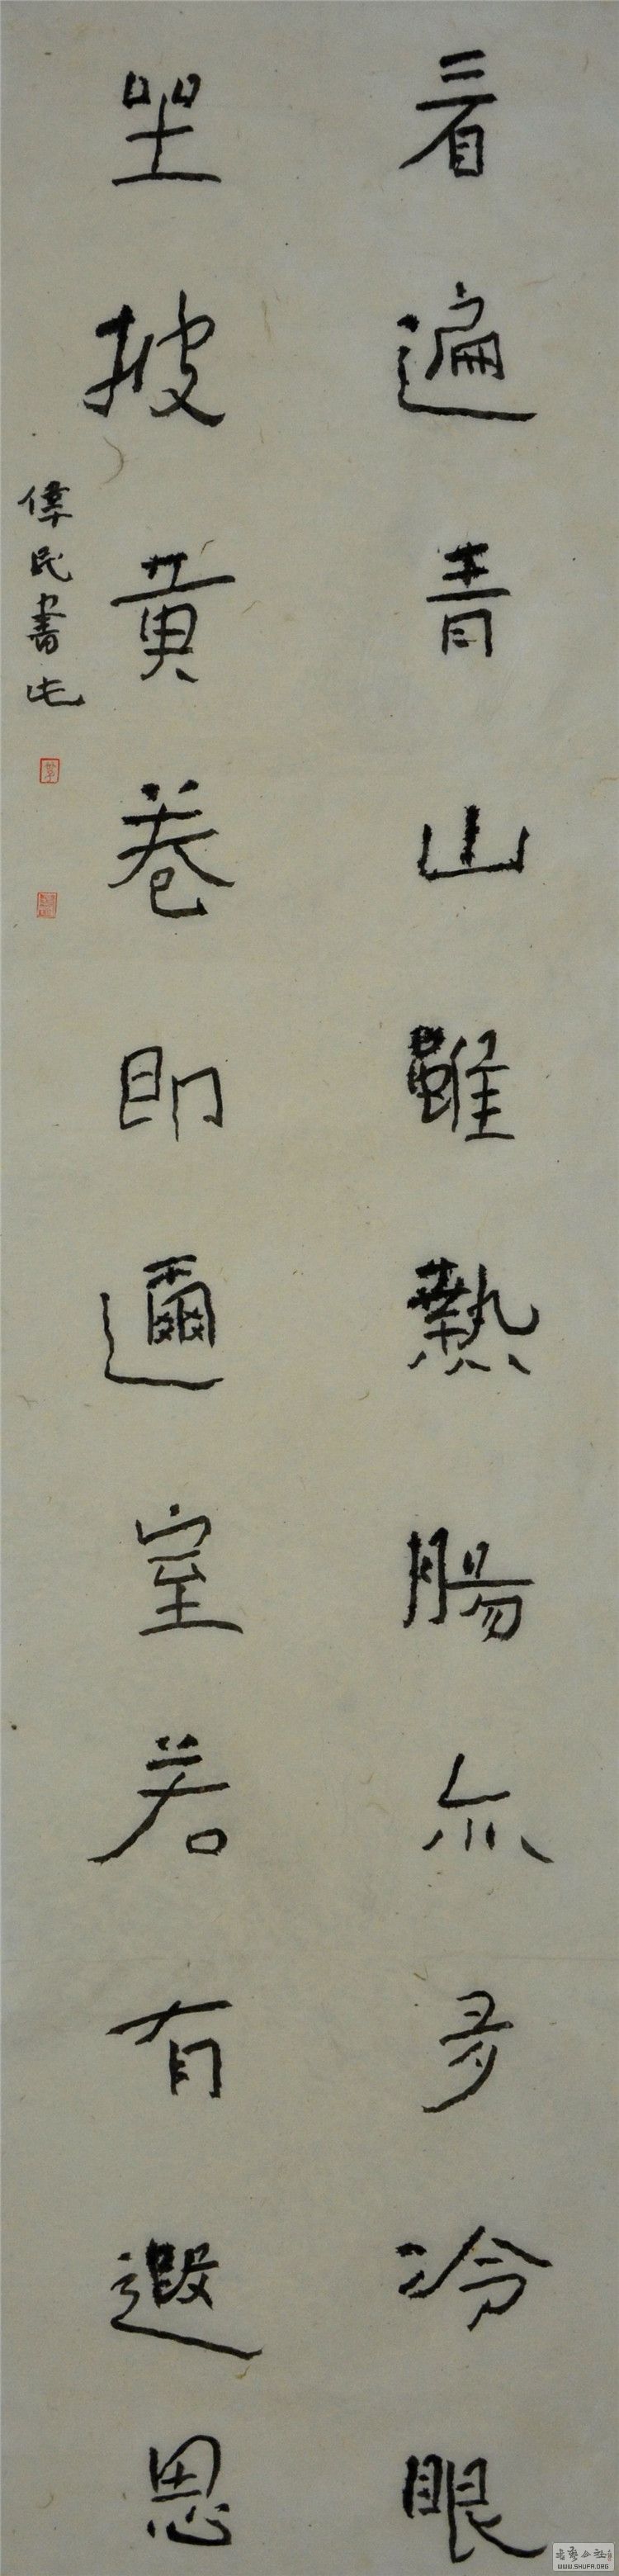 看遍青山雖熱腸亦多冷眼
坐披黄卷即邇室若有遐思
偉民書也
WWW.SHUFA.ORG